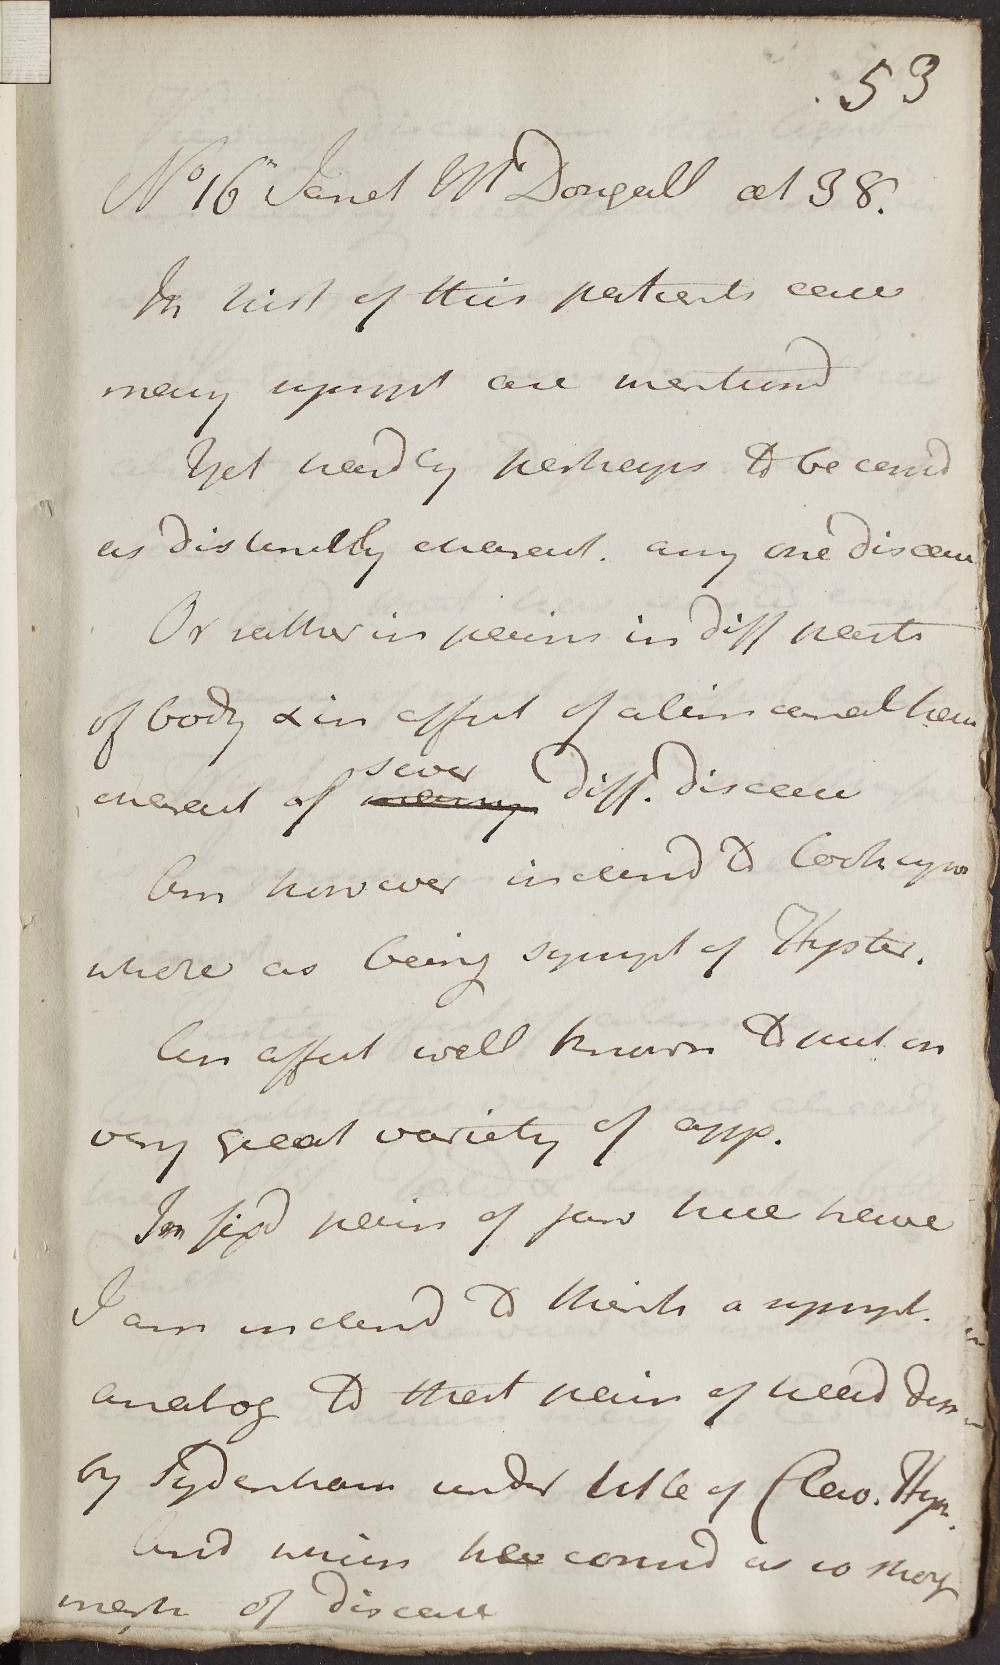 53
No 16 Janet McDougall aet 38.
In hist of this patients case
many sympt are mentiond
Yet hardly perhaps to be consd
as distinctly charact. any one disease
Or rather in pains in diff parts
of body & in affect of alim canal have
charact of sever many diff. disease
Am however inclend to look upon
whole as being sympt of Hyster.
An affect well known to put on
very great variety of app.
In fixd pain of jaw here have
I am inclend to think a sympt.
analog to that pain of head
by Sydenham under title of Clav. Hys.
And which he consd as so strong
mark of disease